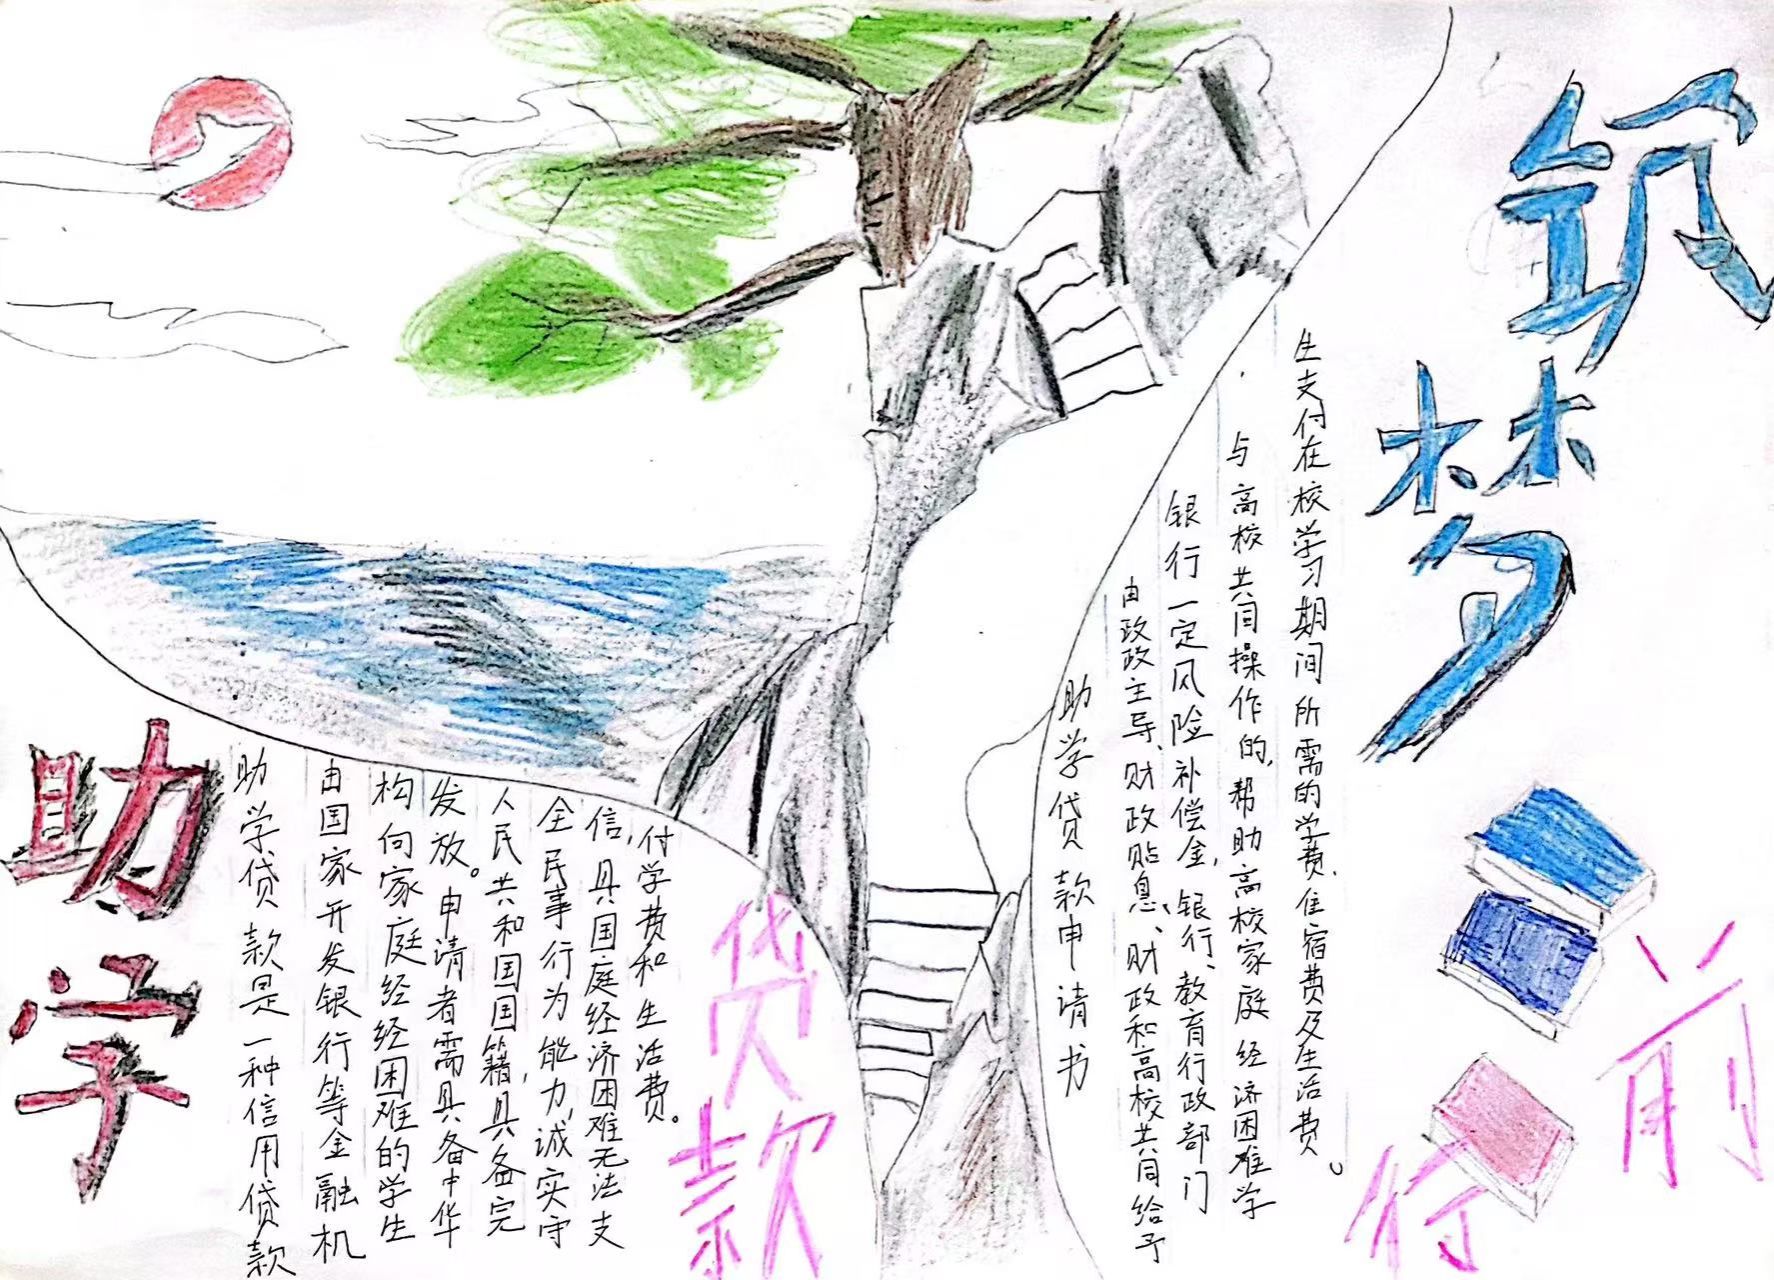 助学
助学贷款是一种信用贷款
由国家开发银行等金融机
构向家庭经经困难的学生
发放。申请者需具备中华
人民共和国国籍,具备完
全民事行为能力,诚实守
信,具国庭经济困难无法支
付学费和生活费。
贷款
助学贷款申请书
由政政主导、财政贴息、财政和高校共同给予
银行一定风险补偿金,银行、教育行政部门
与高校共同操作的,帮助高校家庭经济困难学
生支付在校学习期间所需的学费、住宿费及生活费。
筑梦
前行